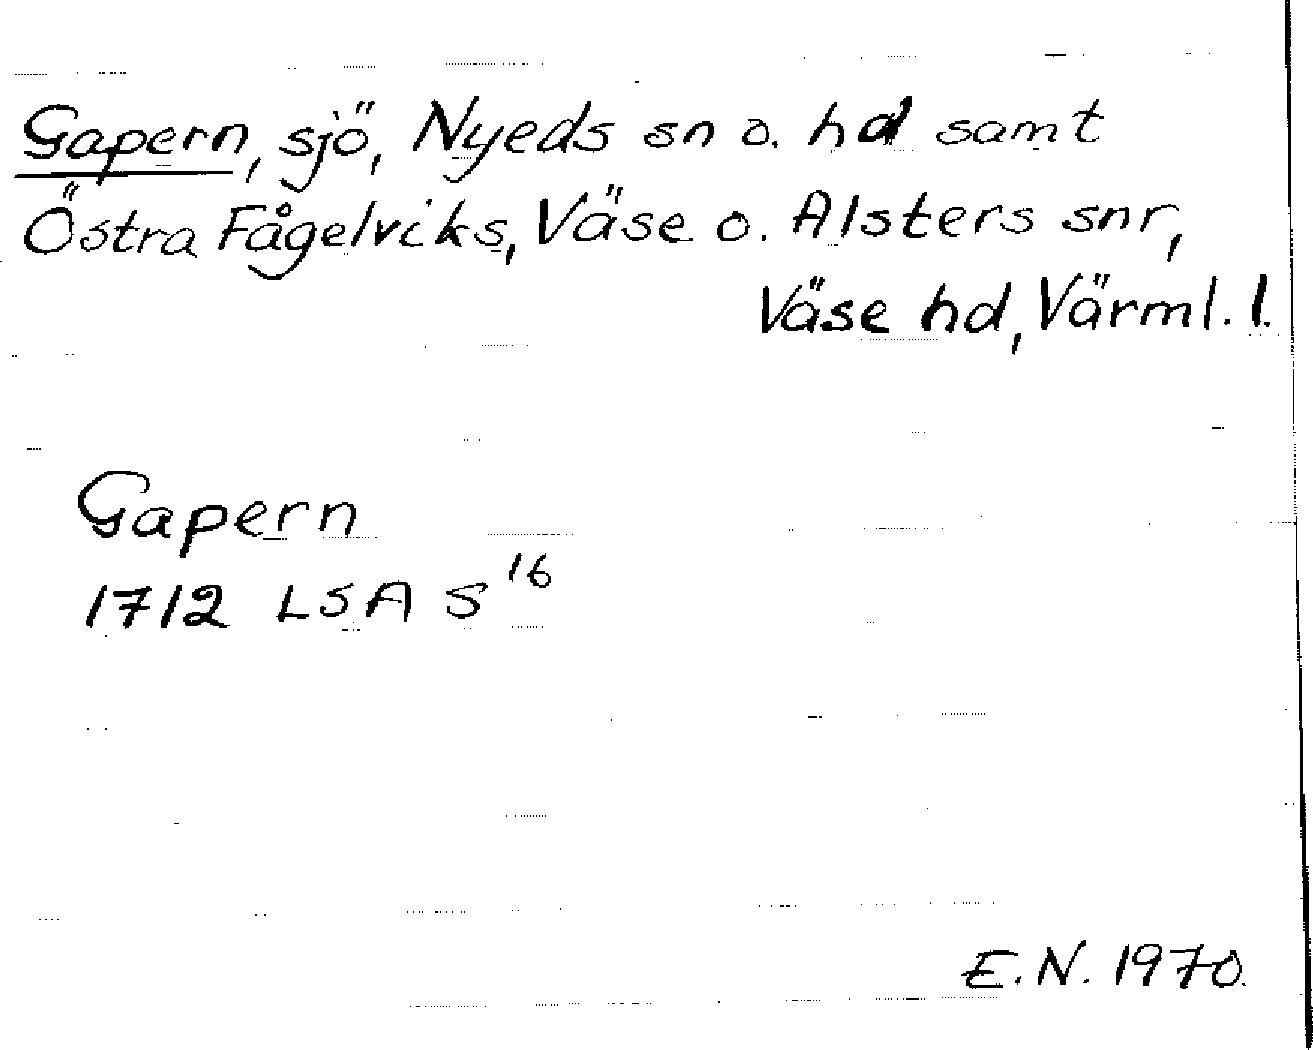 Gapern, sjö, Nyeds sn o. hd samt
Östra Fågelviks, Väse o. Alsters snr,
Väse hd, Värml. l.
Gapern
1712 LSA S 16
E.N. 1970.